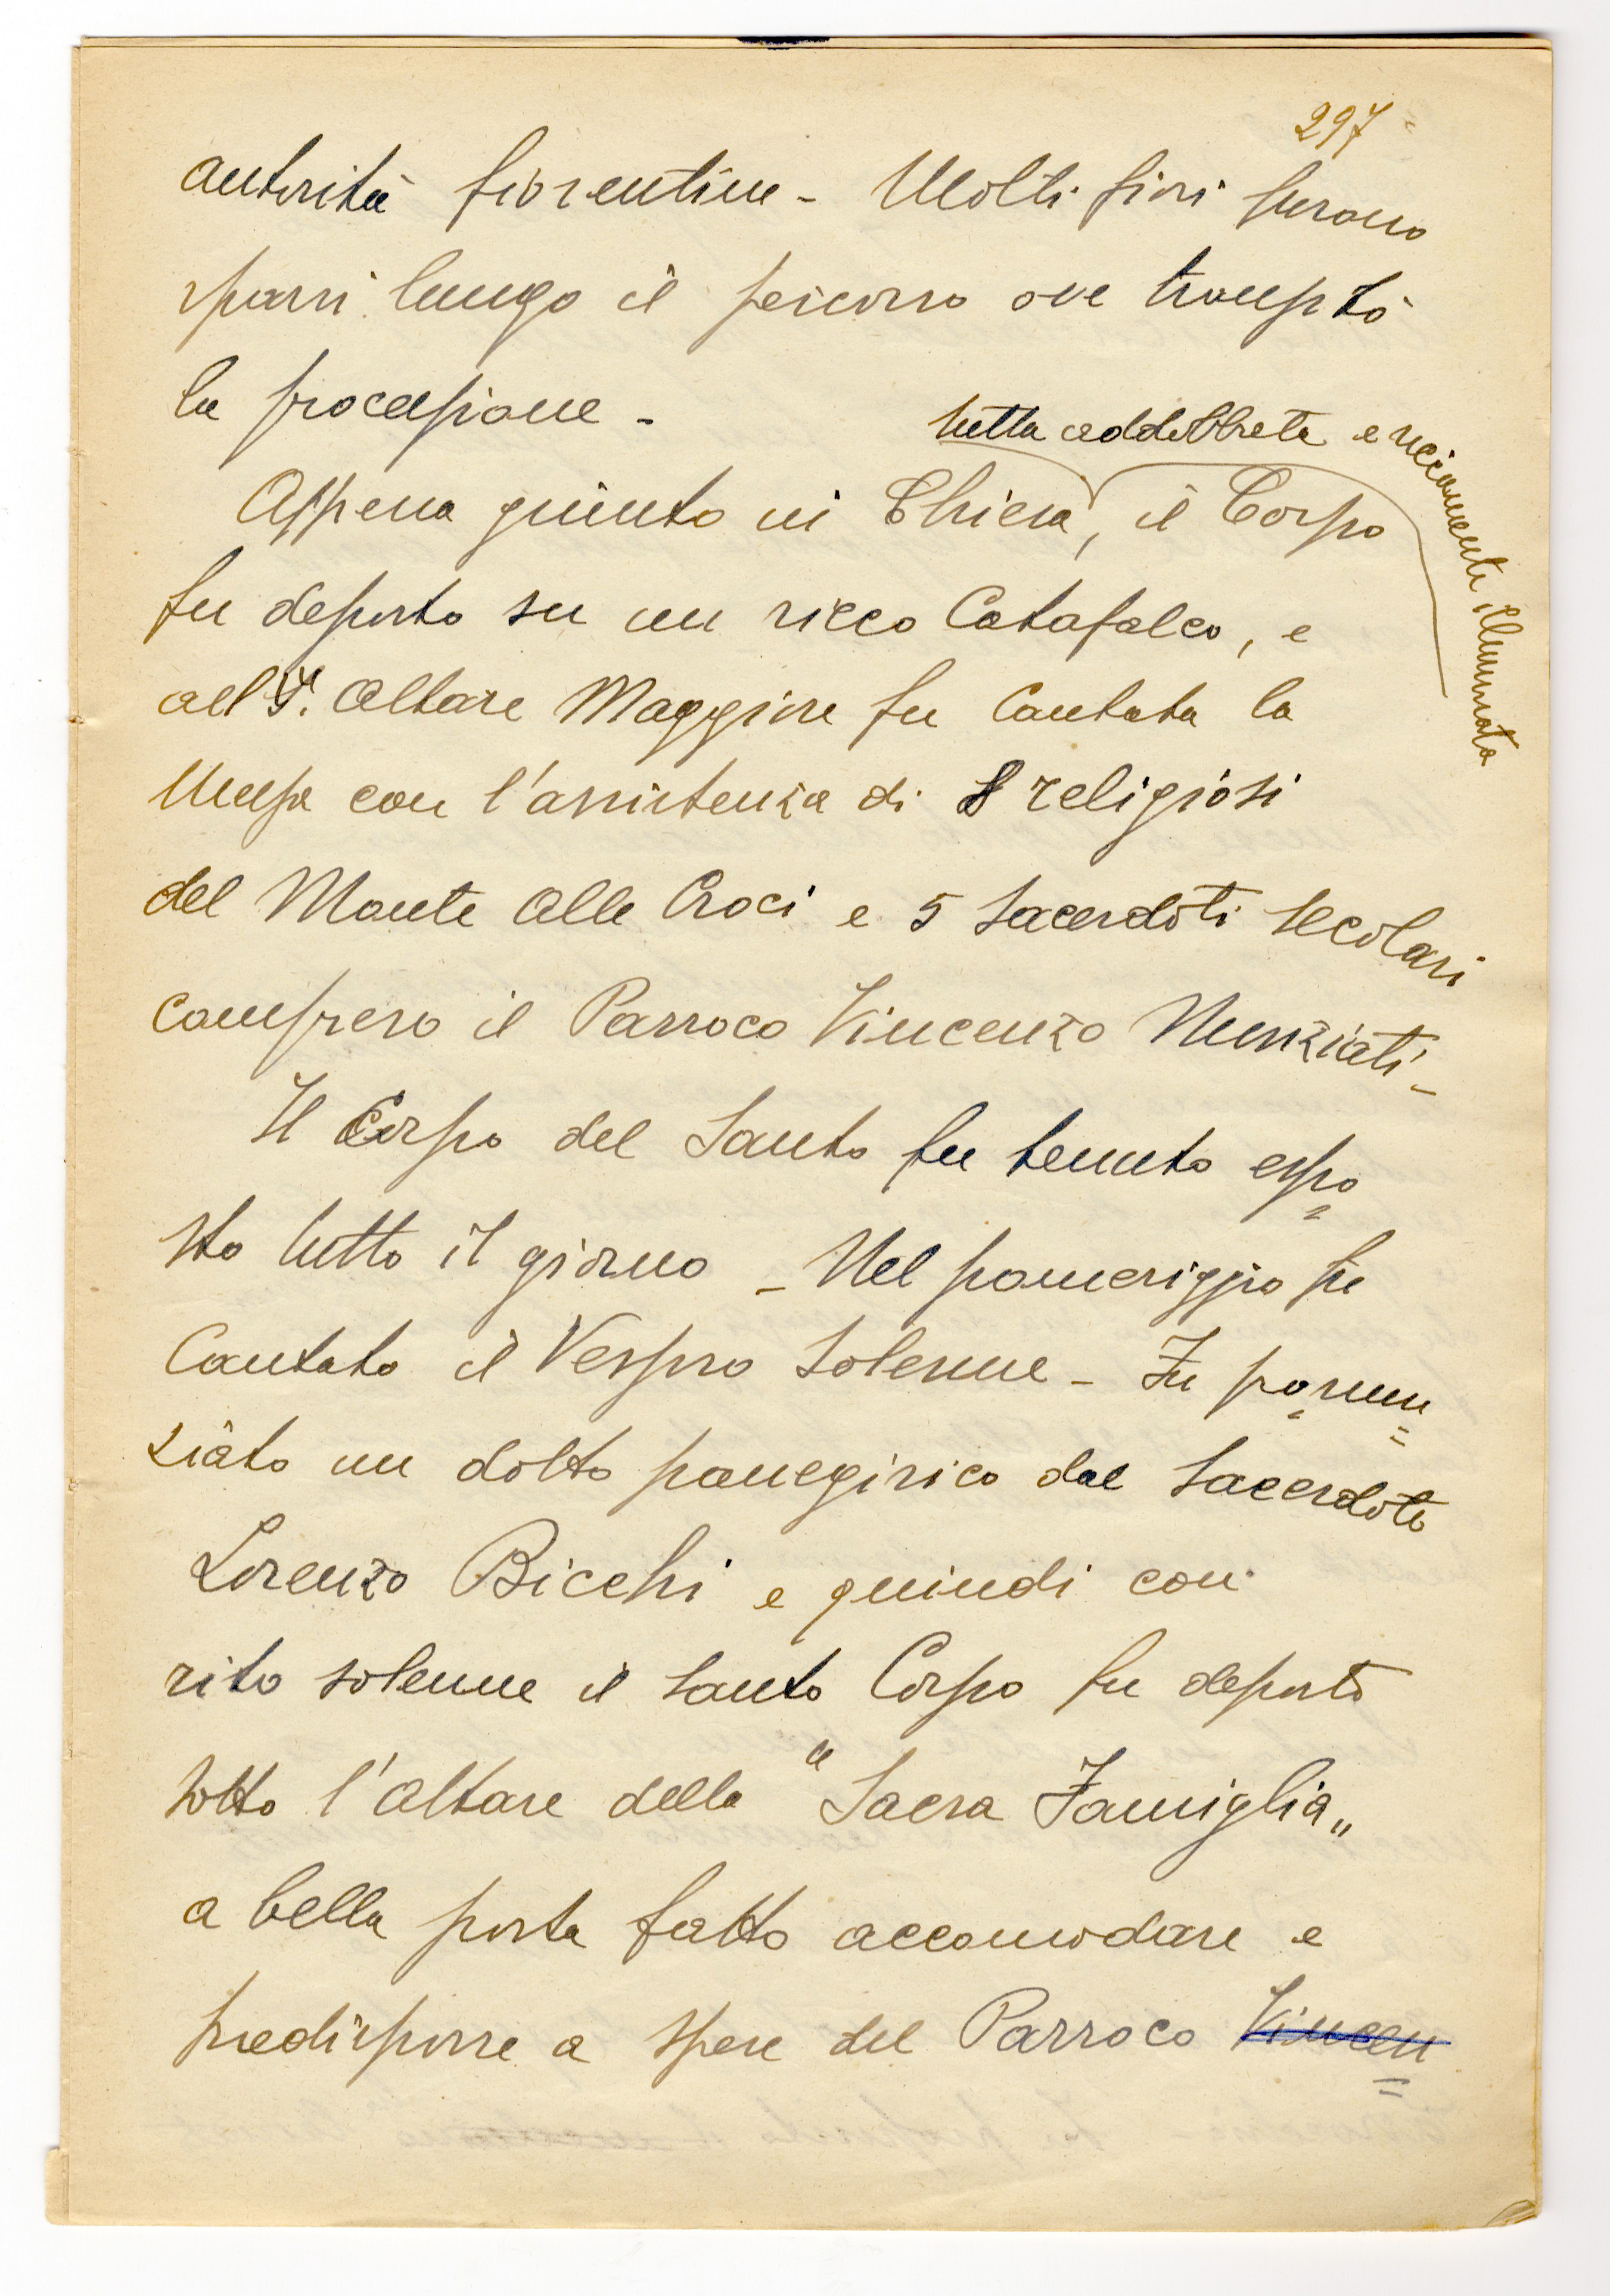 297
autorità fiorentine - Molti fiori furono
sparsi lungo il percorso ove transitò
la processione -
tutta addobbata e riccamente illuminata
Appena giunto in Chiesa, il Corpo
fu deposto su un ricco Catafalco, e
all'Altare Maggiore fu Cantata la
Messa con l'assistenza di 8 religiosi
del Monte Alle Croci e 5 Sacerdoti Secolari
Compreso il Parroco Vincenzo Nunziati -
Il Corpo del Santo fu tenuto espo=
sto tutto il giorno - Nel pomeriggio fu
Cantato il Vespro Solenne - Fu pronun=
ziato un dotto panegirico dal Sacerdote
Lorenzo Bicchi e quindi con
rito solenne il Santo Corpo fu deposto
sotto l'Altare della "Sacra Famiglia„
a bella posta fatto accomodare e
predisporre a spese del Parroco Vincen=